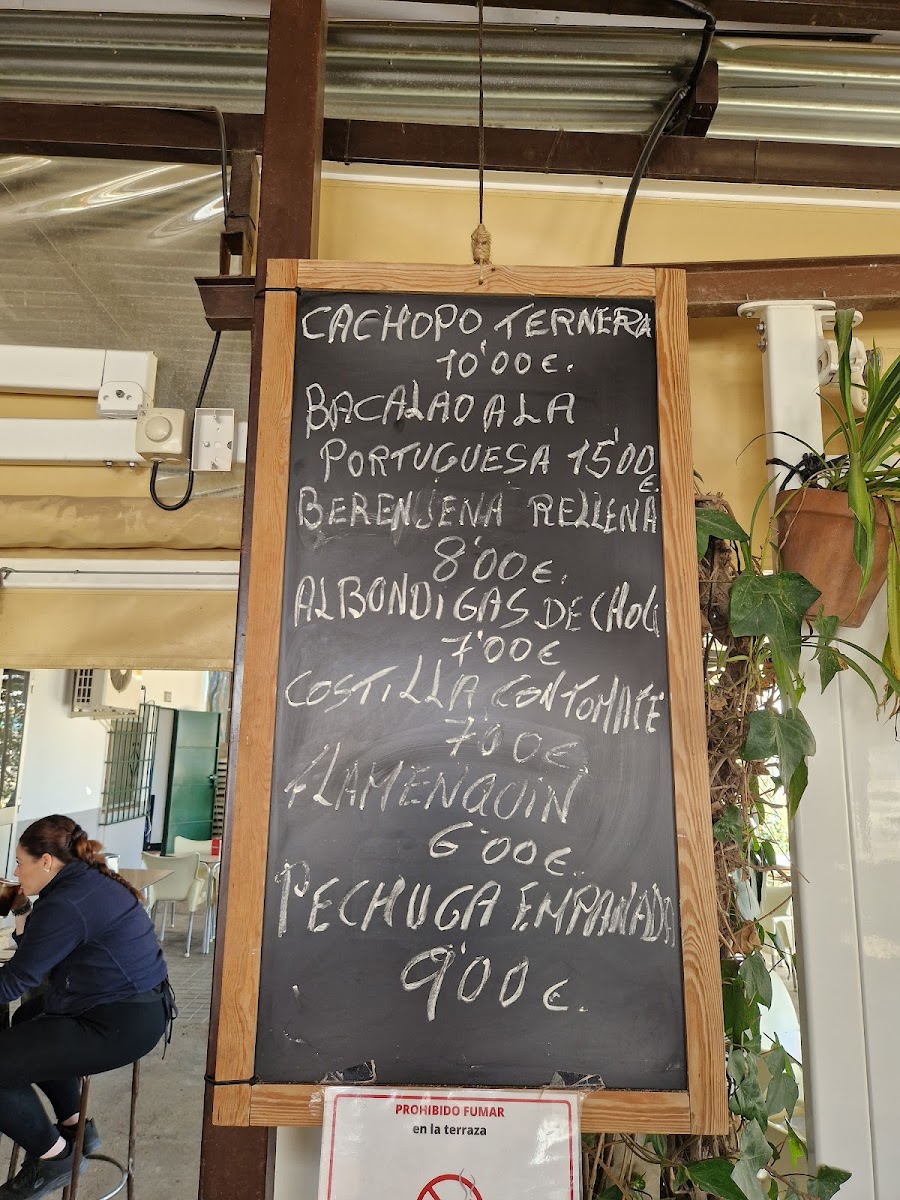 CACHOPO TERNERA
10'00 €.
BACALAO A LA
PORTUGUESA 15'00
€.
BERENJENA RELLENA
8'00 €.
ALBONDIGAS DE CHOCO
7'00 €
COSTILLA CON TOMATE
7'00 €
FLAMENQUIN
6'00 €.
PECHUGA EMPANADA
9'00 €.
PROHIBIDO FUMAR
en la terraza